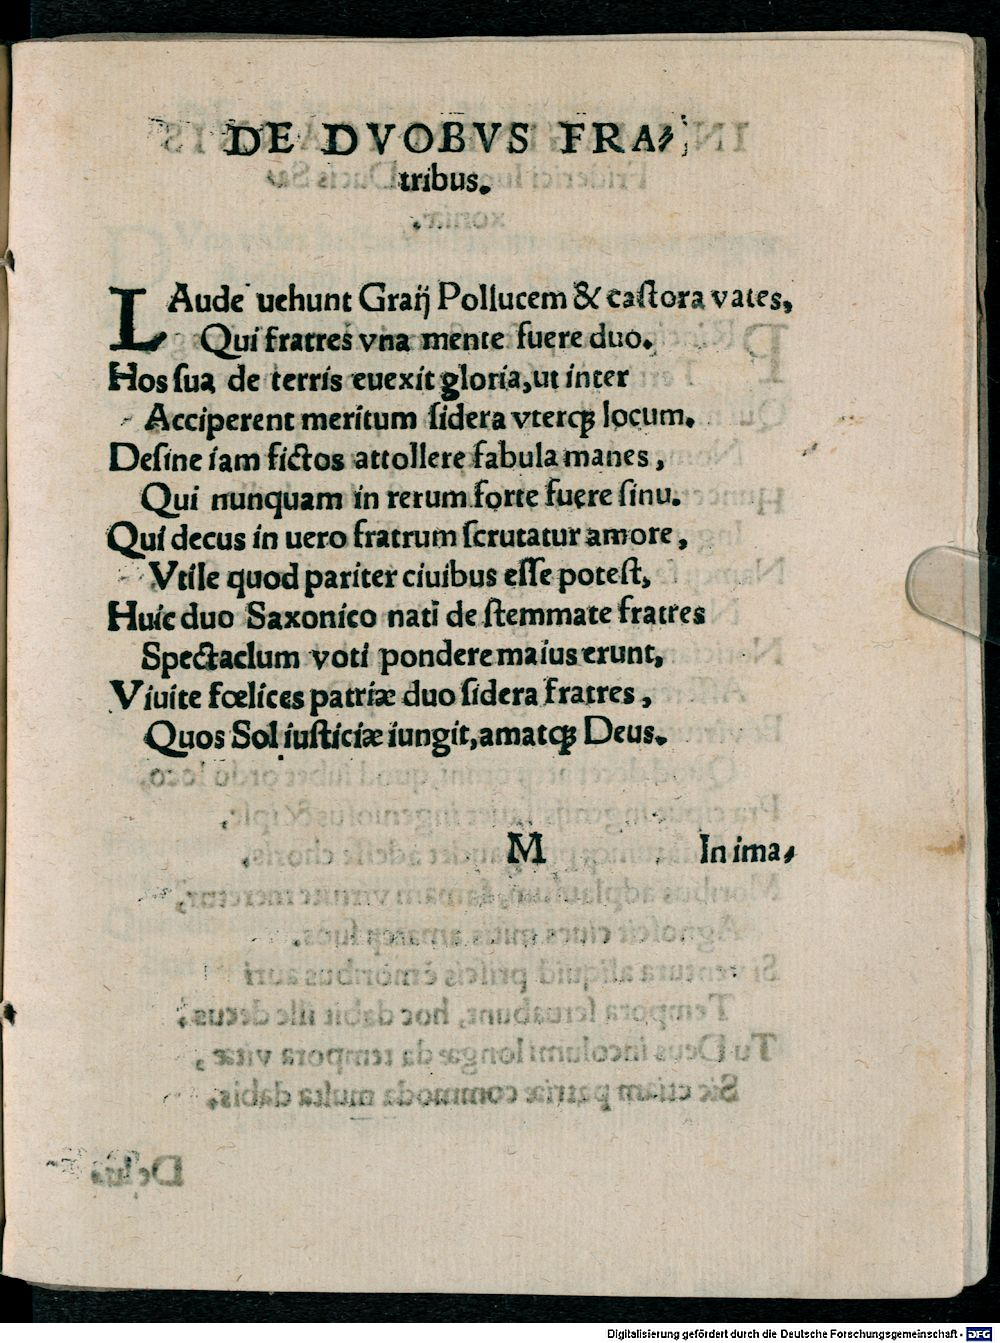 DE DVOBVS FRA-
tribus.
LAude uehunt Graij Pollucem & castora vates,
Qui fratres vna mente fuere duo.
Hos sua de terris euexit gloria, ut inter
Acciperent meritum sidera vterqꝫ locum.
Desine iam fictos attollere fabula manes,
Qui nunquam in rerum forte fuere sinu.
Qui decus in uero fratrum scrutatur amore,
Vtile quod pariter ciuibus esse potest,
Huic duo Saxonico nati de stemmate fratres
Spectaclum voti pondere maius erunt,
Viuite fœlices patriæ duo sidera fratres,
Quos Sol iusticiæ iungit, amatqꝫ Deus.
M In ima-
Digitalisierung gefördert durch die Deutsche Forschungsgemeinschaft - DFG